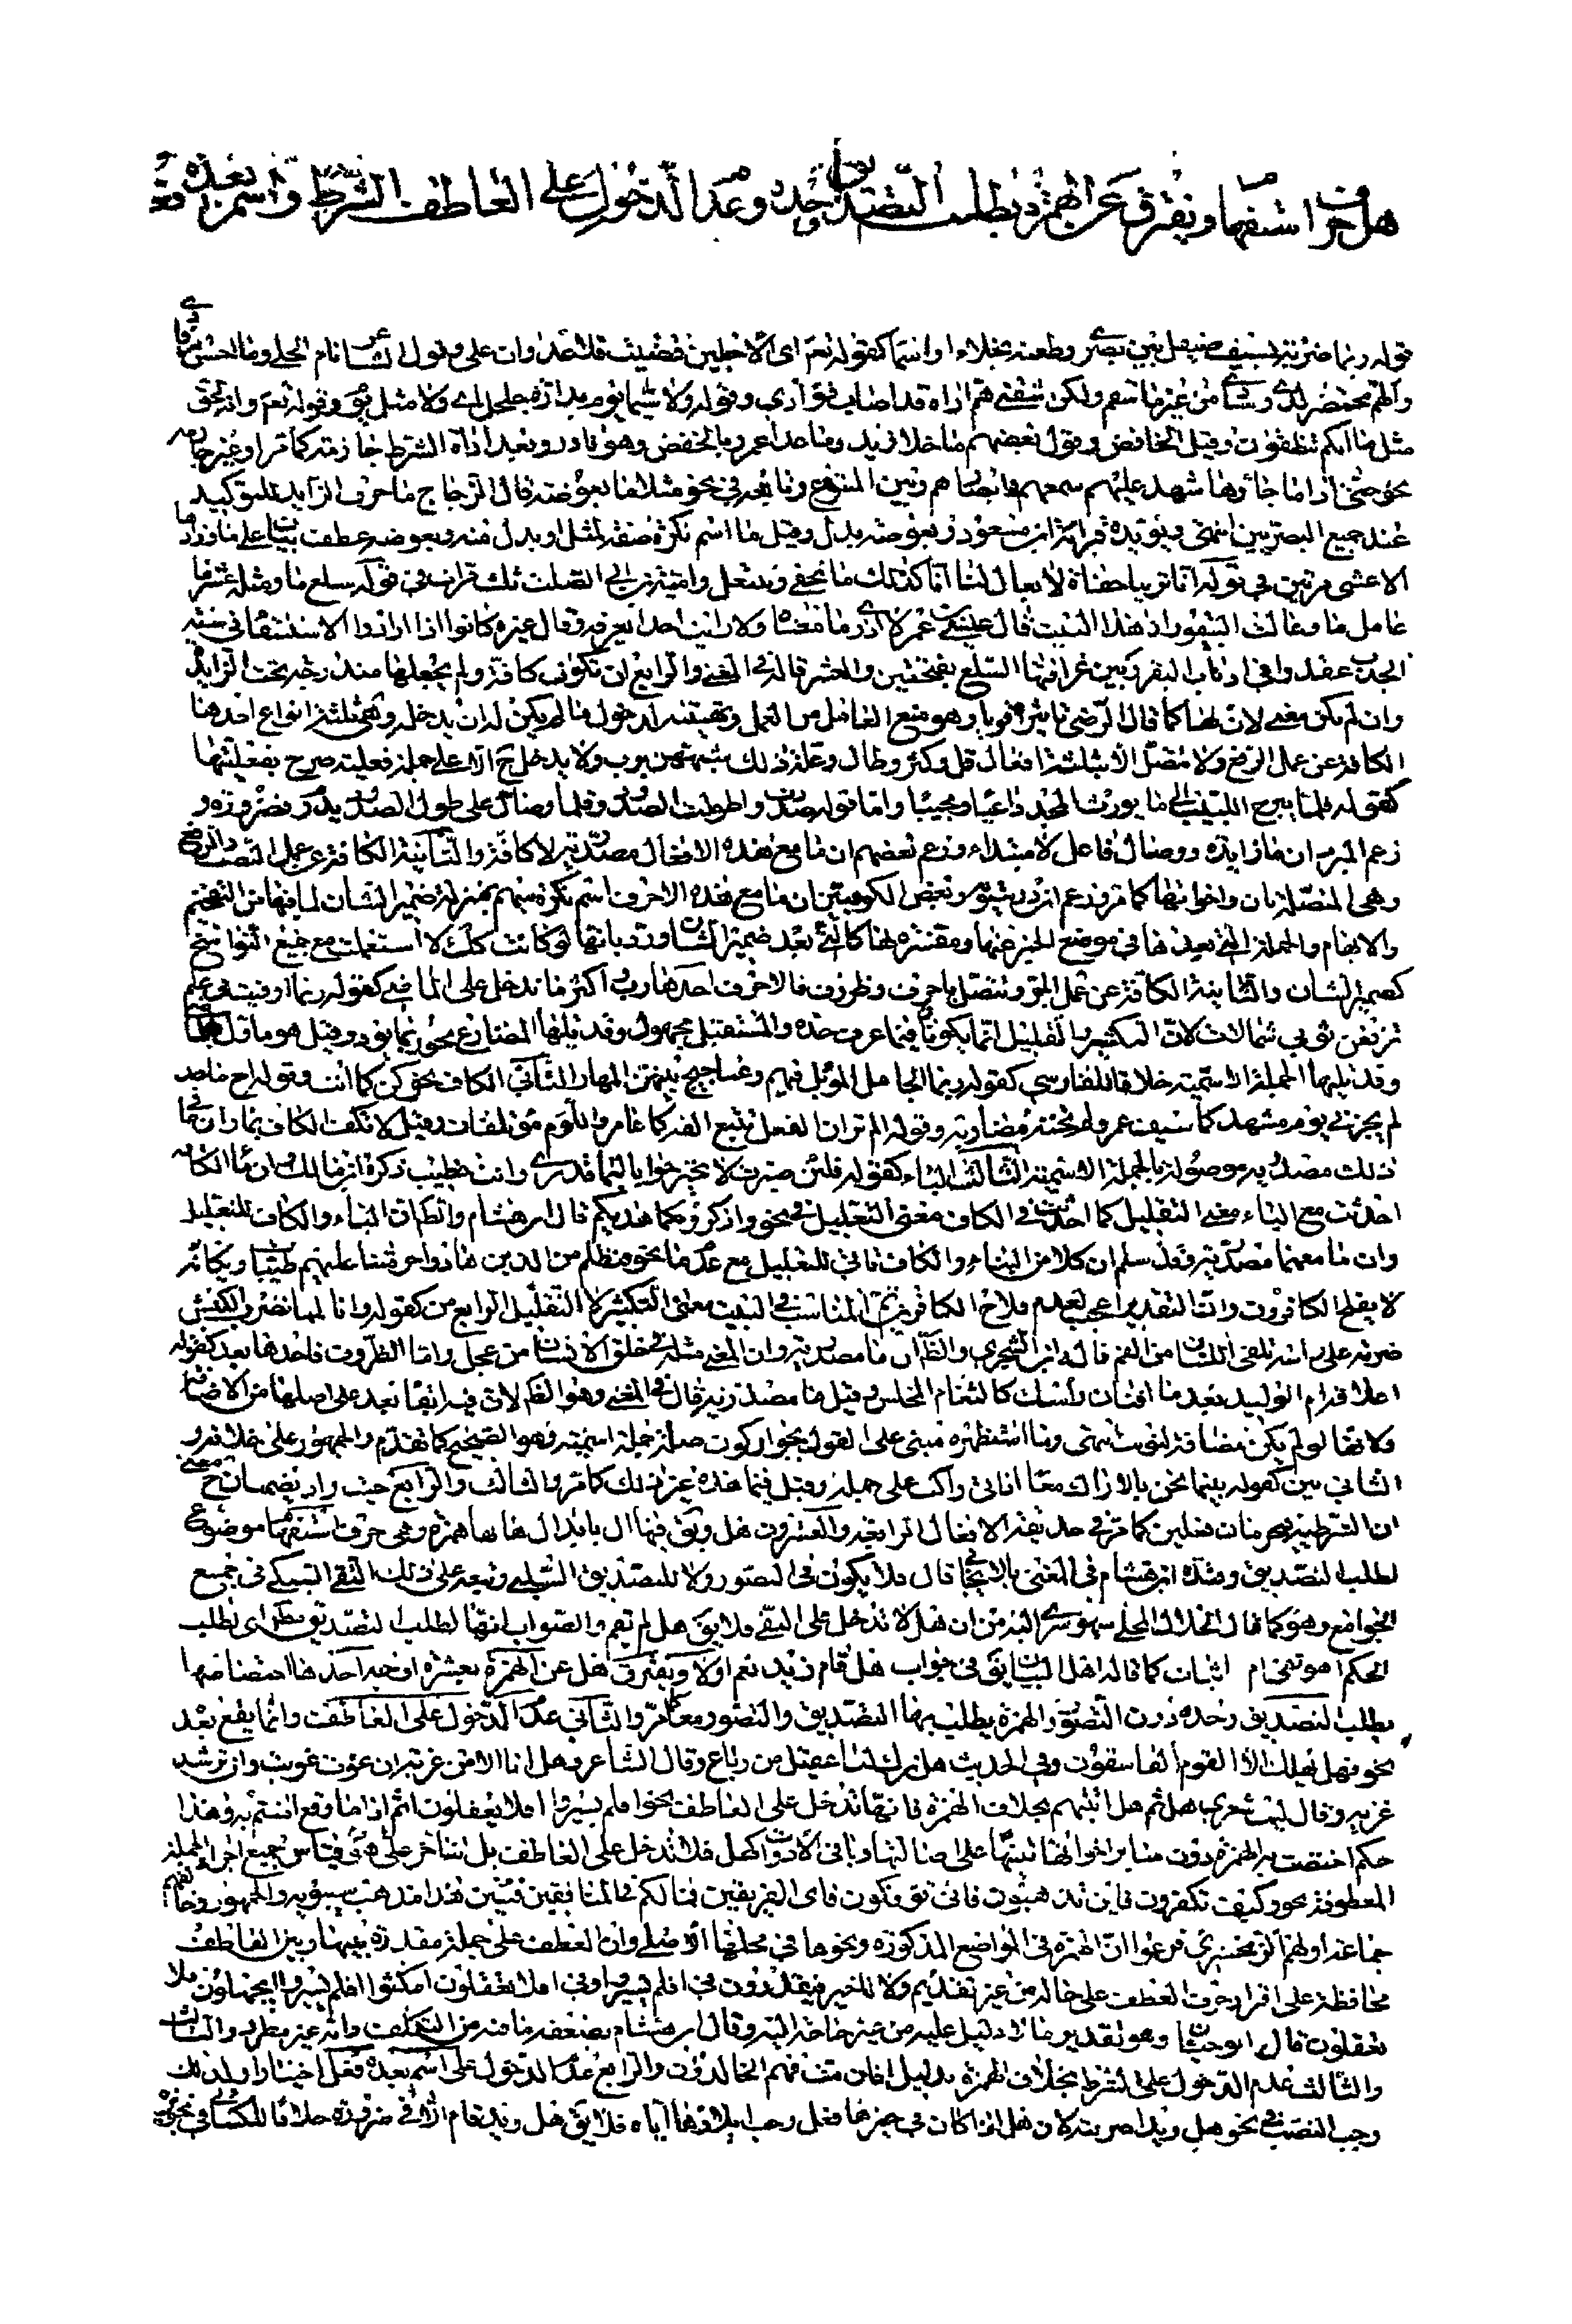 هل حرف استفهام ويفترق عن الهمزة بطلب التصديق وحده وعدم الدخول على العاطف والشرط واسم بعده فعل
قوله ربما ضربة بسيف صقيل بين بصرى وطعنة نجلاء
والهم محتضر لدى وسادى من غير ما سقم ولكن شفني هم اراه قد اصاب فؤادي وقوله ولا سيما يوم بدارة جلجل اى ولا مثل يوم وقوله تعم وانه لحق
مثل ما انكم تنطقون وقيل الخافض وقول بعضهم ما خلا زيد وما عدا عمرو بالخفض وهو نادر وبعد اداة الشرط جازمة كما مر او غير جازمة
نحو حتى اذا ما جاؤها شهد عليهم سمعهم وبين المتبوع وتابعه في نحو مثلا ما بعوضة قال الزجاج ما حرف زايد للتوكيد
عند جميع البصريين انتهى ويؤيده قراءة ابن مسعود وبعوضة بدل وقيل ما اسم نكرة صفة لمثلا وبدل منه وبعوضة عطف بيان على ما وزادها
الاعشى مرتين في قوله اما ترينا حفاة لا نعال لنا انا كذلك ما نحفى وننتعل وامية بن ابي الصلت ثلث مرات في قوله سلع ما ومثله عشر ما
عائل ما وعالت البيقورا وهذا البيت قال عيسى بن عمر لا ادرى ما معناه ولا رايت احدا يعرفه وقال غيره كانوا اذا ارادوا الاستسقاء في سنة
الجدب عقدوا في اذناب البقر وبين عراقيبها السلع بفتحتين والعشر قاله في المغنى والرابع ان تكون كافة ولم يجعلها مندرجة تحت الزايد
وان لم يكن معنى لان لها كما قال الرضى تاثيرا قويا وهو منع العامل من العمل وتهيئته لدخول ما لم يكن له ان يدخله وهي ثلثة انواع احدها
الكافة عن عمل الرفع ولا تتصل الا بثلثة افعال قل وكثر وطال وعلة ذلك شبههن برب ولا يدخل ح الا على جملة فعلية صرح بفعليتها
كقوله قلما يبرح اللبيب الى ما يورث المجد داعيا او مجيبا واما قوله صددت واطولت الصدود وقلما وصال على طول الصدود يدوم فضرورة و
زعم المبرد ان ما زايدة ووصال فاعل لا مبتداء وزعم بعضهم ان ما مع هذه الافعال مصدرية لا كافة والثانية الكافة عن عمل النصب والرفع
وهي المتصلة بان واخواتها كما مر وزعم ابن درستويه وبعض الكوفيين ان ما مع هذه الاحرف اسم نكرة مبهم بمنزلة ضمير الشان لما فيها من التفخيم
والابهام والجملة التي بعدها في موضع الخبر عنها ومفسرة لها كالتي بعد ضمير الشان ورد بانها لو كانت كذلك لاستعملت مع جميع النواسخ
كضمير الشان والثالثة الكافة عن عمل الجر وتتصل باحرف وظروف فالاحرف احدها رب اكثر ما تدخل على الماضى كقوله ربما اوفيت في علم
ترفعن ثوبي شمالات لان التكثير والتقليل انما يكونان فيما عرف حده والمستقبل مجهول وقد يليها المضارع نحو ربما يود وقيل هو مأول
وقد يليها الجملة الاسمية خلافا للفارسي كقوله ربما الجامل المؤبل فيهم وعناجيج بينهن المهار الثاني الكاف نحو كن كما انت وقوله اخ ماجد
لم يخزني يوم مشهد كما سيف عمرو لم تخنه مضاربه
ذلك مصدرية موصولة بالجملة الاسمية الثالث الباء كقوله فلئن صرت لا تحير جوابا لبما قد ترى وانت خطيب ذكره ابن مالك وان ما الكافة
احدثت مع الباء معنى التقليل كما احدثت في الكاف معنى التعليل في نحو واذكروه كما هديكم قال ابن هشام والظاهر ان الباء والكاف للتعليل
وان ما معهما مصدرية وقد سلم ان كلا من الباء والكاف تاتي للتعليل مع عدم ما نحو فبظلم من الذين هادوا حرمنا عليهم طيبات ويكانه
لا يفلح الكافرون وان التقدير اعجب لعدم فلاح الكافرين ثم المناسب في البيت معنى التكثير لا التقليل الرابع من كقوله وانا لمما نضرب الكبش
ضربة على راسه تلقى اللسان من الفم قاله ابن الشجرى والظاهر ان ما مصدرية وان المعنى مثله في خلق الانسان من عجل واما الظروف فاحدها بعد كقوله
اعلاقة ام الوليد بعد ما افنان راسك كالثغام المخلس وقيل ما مصدرية قال في المغنى وهو الظاهر لان فيه ابقاء بعد على اصلها من الاضافة
ولانها لو لم يكن مضافة لنونت انتهى وما استظهره مبنى على القول بجواز كون صلة جملة اسمية وهو الصحيح كما تقدم والجمهور على خلافه و
الثاني بين كقوله بينما نحن بالاراك معا اذ اتى راكب على جمله وقيل فيما هذه غير ذلك كما مر والثالث والرابع حيث واذ يضمنان ح معنى
ان الشرطية فيجزمان فعلين كما مر في حديقة الافعال الرابعة والعشرون هل ويق فيها ال بابدال هائها همزة وهي حرف استفهام موضوع
لطلب التصديق وقيده ابن هشام في المغنى بالايجابي قال فلا يكون في التصور ولا للتصديق السلبى وتبعه على ذلك التقى السبكى في جمع
الجوامع وهو كما قال الجلال المحلى سهو سرى اليه من ان هل لا تدخل على النفى فلا يق هل لم يقم والصواب انها لطلب التصديق مطلقا اى لطلب
الحكم اهو نفى ام اثبات كما قاله اهل البيان يق في جواب هل قام زيد نعم او لا ويفترق هل عن الهمزة بعشرة اوجه احدها اختصاصها
بطلب التصديق وحده دون التصور والهمزة يطلب بها التصديق والتصور معا كما مر والثاني عدم الدخول على العاطف وانما يقع بعد
نحو فهل يهلك الا القوم الفاسقون وفي الحديث هل ترك لنا عقيل من رباع وقال الشاعر وهل انا الا من غزية ان غوت غويت وان ترشد
غزية وقال ليت شعرى هل ثم هل اتينهم بخلاف الهمزة فانها تدخل على العاطف نحو افلم يسيروا افلا يعقلون اثم اذا ما وقع امنتم به وهذا
حكم اختصت به الهمزة دون ساير اخواتها تنبيها على اصالتها وباقى الادوات كهل فلا تدخل على العاطف بل تتاخر عنه كما هو قياس جميع اجزاء الجملة
المعطوفة نحو وكيف تكفرون فاين تذهبون فانى تؤفكون فاى الفريقين فما لكم في المنافقين فئتين هذا مذهب سيبويه والجمهور وخالفهم
جماعة اولهم الزمخشرى فزعموا ان الهمزة في المواضع المذكورة ونحوها في محلها الاصلى وان العطف على جملة مقدرة بينها وبين العاطف
محافظة على اقرار حرف العطف على حاله من غير تقديم ولا تاخير فيقدرون في افلم يسيروا وفي افلا تعقلون امكثوا افلم يسيروا اتجهلون فلا
تعقلون قال ابو حيان وهو تقدير ما لا دليل عليه من غير حاجة اليه وقال ابن هشام يضعفه ما فيه من التكلف وانه غير مطرد
والثالث عدم الدخول على الشرط بخلاف الهمزة بدليل افان مت فهم الخالدون والرابع عدم الدخول على اسم بعده فعل اختيارا ولذلك
وجب النصب في نحو هل زيدا ضربته لان هل اذا كان في حيزها فعل وجب ايلاؤها اياه فلا يق هل زيد قام الا في ضرورة خلافا للكسائى